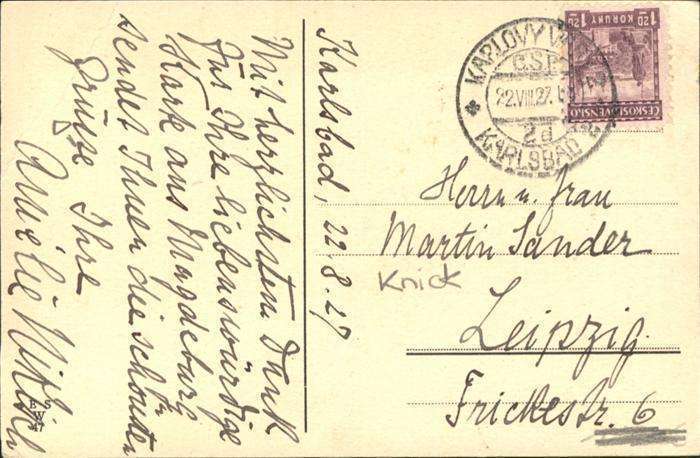 Karlsbad, 22.8.27
Mit herzlichsten Dank
für Ihre liebenswürdige
Karte aus Magdeburg
sendet Ihnen die schönsten
Grüsse Ihre
Amélie
B S
W
47
KARLOVY
Č.S.P.
22.VIII.27.
2d
KARLSBAD
1.20 1.20
KORUNY
ČESKOSLOVENSKO
Herrn u. Frau
Martin Sander
Knick
Leipzig.
Frickestr. 6